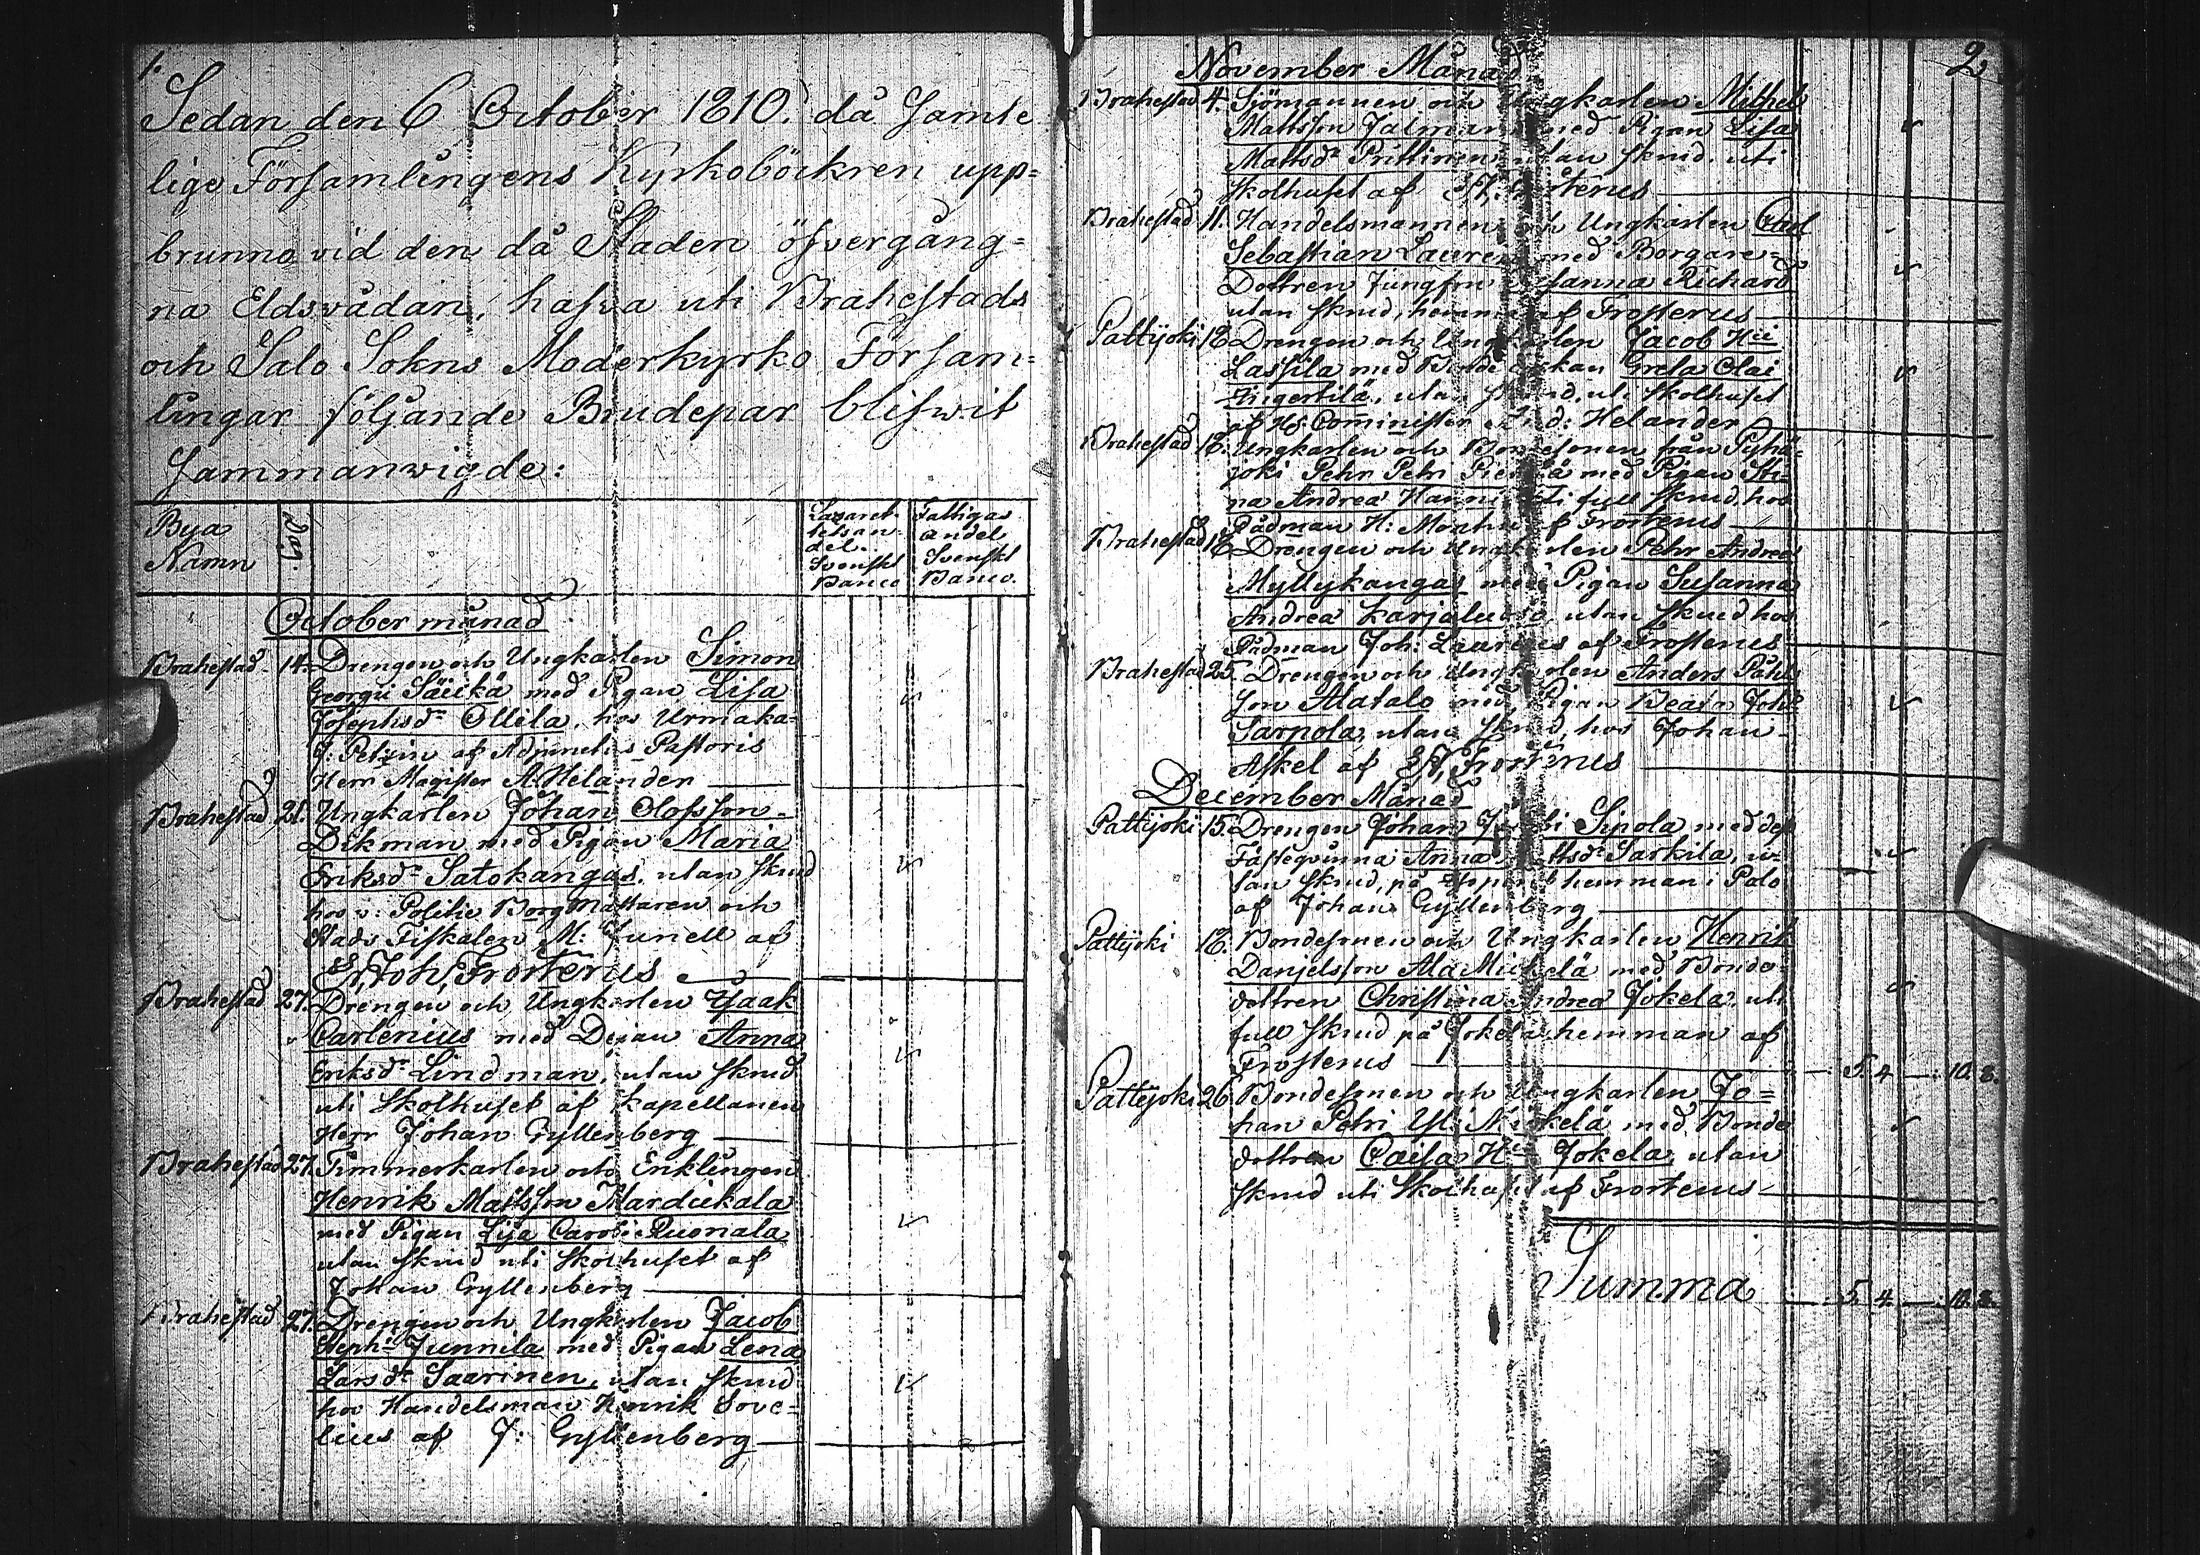 1.
Sedan den 6 October 1810. då samte
lige Församlingens Kyrkoböckren upp=
brunno vid den då Staden öfvergång=
na Eldsvådan, hafva uti Brahestads
och Salo Sokns Moderkyrko Församl=
lingar följande Brudepar blifwit
sammanwigde:
Bya Namn
Dag.
Lazaret-
tets an-
del.
Svenskt
Banco
Fattigas
andel
Svenskt
Banco.
October månad
Brahestad 14. Drengen och Ungkarlen Simon
Georgii Säickä med Pigan Lisa
Josephsdr Ollila, hos Urmaka=
J: Petzin af Adjunctus Pastoris
Herr Magister A. Helander
Brahestad 21. Ungkarlen Johan Olofsson
Dikman med Pigan Maria
Eriksdr Satokangas, utan skrud
hos v: Politie Borgmästaren och
Stads Fiskalen M: Junell af
Joh. Frosterus
Brahestad 27. Drengen och Ungkarlen Isaak
Carlenius med Pigan Anna
Eriksdr Lindman, utan skrud
uti Skolhuset af Kapellanen
Herr Johan Gyllenberg
Brahestad 27. Timmerkarlen och Enklingen
Henrik Mattsson Mardickala
med Pigan Lisa Caroli Ruonala
utan skrud uti Skolhuset af
Johan Gyllenberg
Brahestad 27. Drengen och Ungkarlen Jacob
Steph: Junnila med Pigan Lena
Larsdr Saarinen, utan skrud
hos Handelsman Henrik Sove=
lius af J: Gyllenberg
2
November Månad
Brahestad 4. Sjömannen och Ungkarlen Michel
Mattsson Jalman med Pigan Lisa
Mattsdr Prittinen utan skrud, uti
Skolhuset af Frosterus
Brahestad 11. Handelsmannen och Ungkarlen Carl
Sebastian Lauren med Borgare=
Dottren Jungfru Sanna Richard
utan skrud, hemma af Frosterus
Pattijoki 18. Drengen och Ungkarlen Jacob Hii
Lassila med Greta Olai
utan skrud, uti Skolhuset
af Hr Comminister And: Helander
Brahestad 18. Ungkarlen och Bondesonen från Pyhä=
joki Pehr Pehr med Pigan Sti=
na Andrea Hanni uti full skrud, hos
Rådman H: af Frosterus
Brahestad 18. Drengen och Ungkarlen Pehr Andrea
Myllykangas med Pigan Susanna
Andrea Karjaluoto utan skrud hos
Rådman Joh: af Frosterus
Brahestad 25. Drengen och Ungkarlen Anders Påhls
son Alatalo med Pigan Beata Johs
Sarpola, utan skrud, hos Johan
Askel af Frosterus
December Månad
Pattijoki 15. Drengen Johan Sipola med dess
Fästeqvinna Anna Mattsdr Sarkila, u=
tan skrud, på hemman i Palo
af Johan Gyllenberg
Pattijoki 18. Bondesonen och Ungkarlen Henrik
Danielsson Ala Mickelä med Bonde=
dottren Christina Andrea Jokela, uti
full skrud på Jokela hemman af
Frosterus — : 5. 4 — : 10. 8.
Pattijoki 26. Bondesonen och Ungkarlen Jo=
han Petri Yli Mickelä med Bonde
dottren Caisa Hri Jokela, utan
skrud uti Skolhuset af Frosterus
Summa — : 5. 4. — : 10. 8.